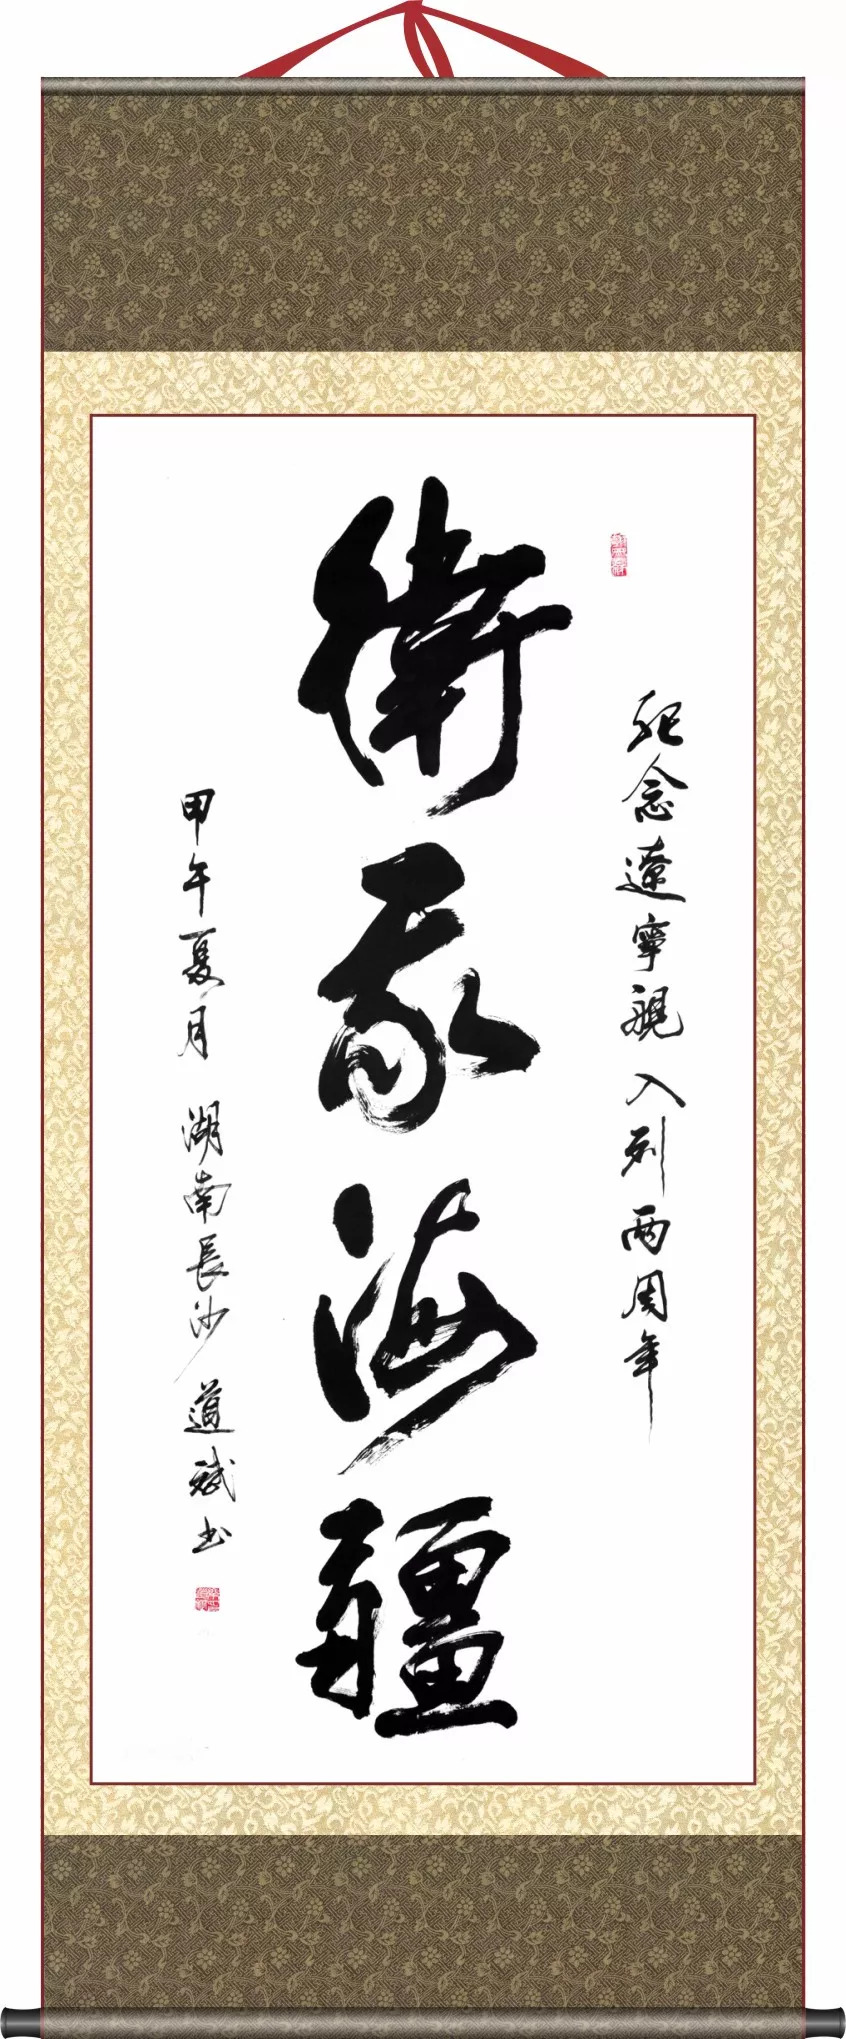 紀念遼寧艦入列两周年
衛我海疆
甲午夏月 湖南長沙 道斌书